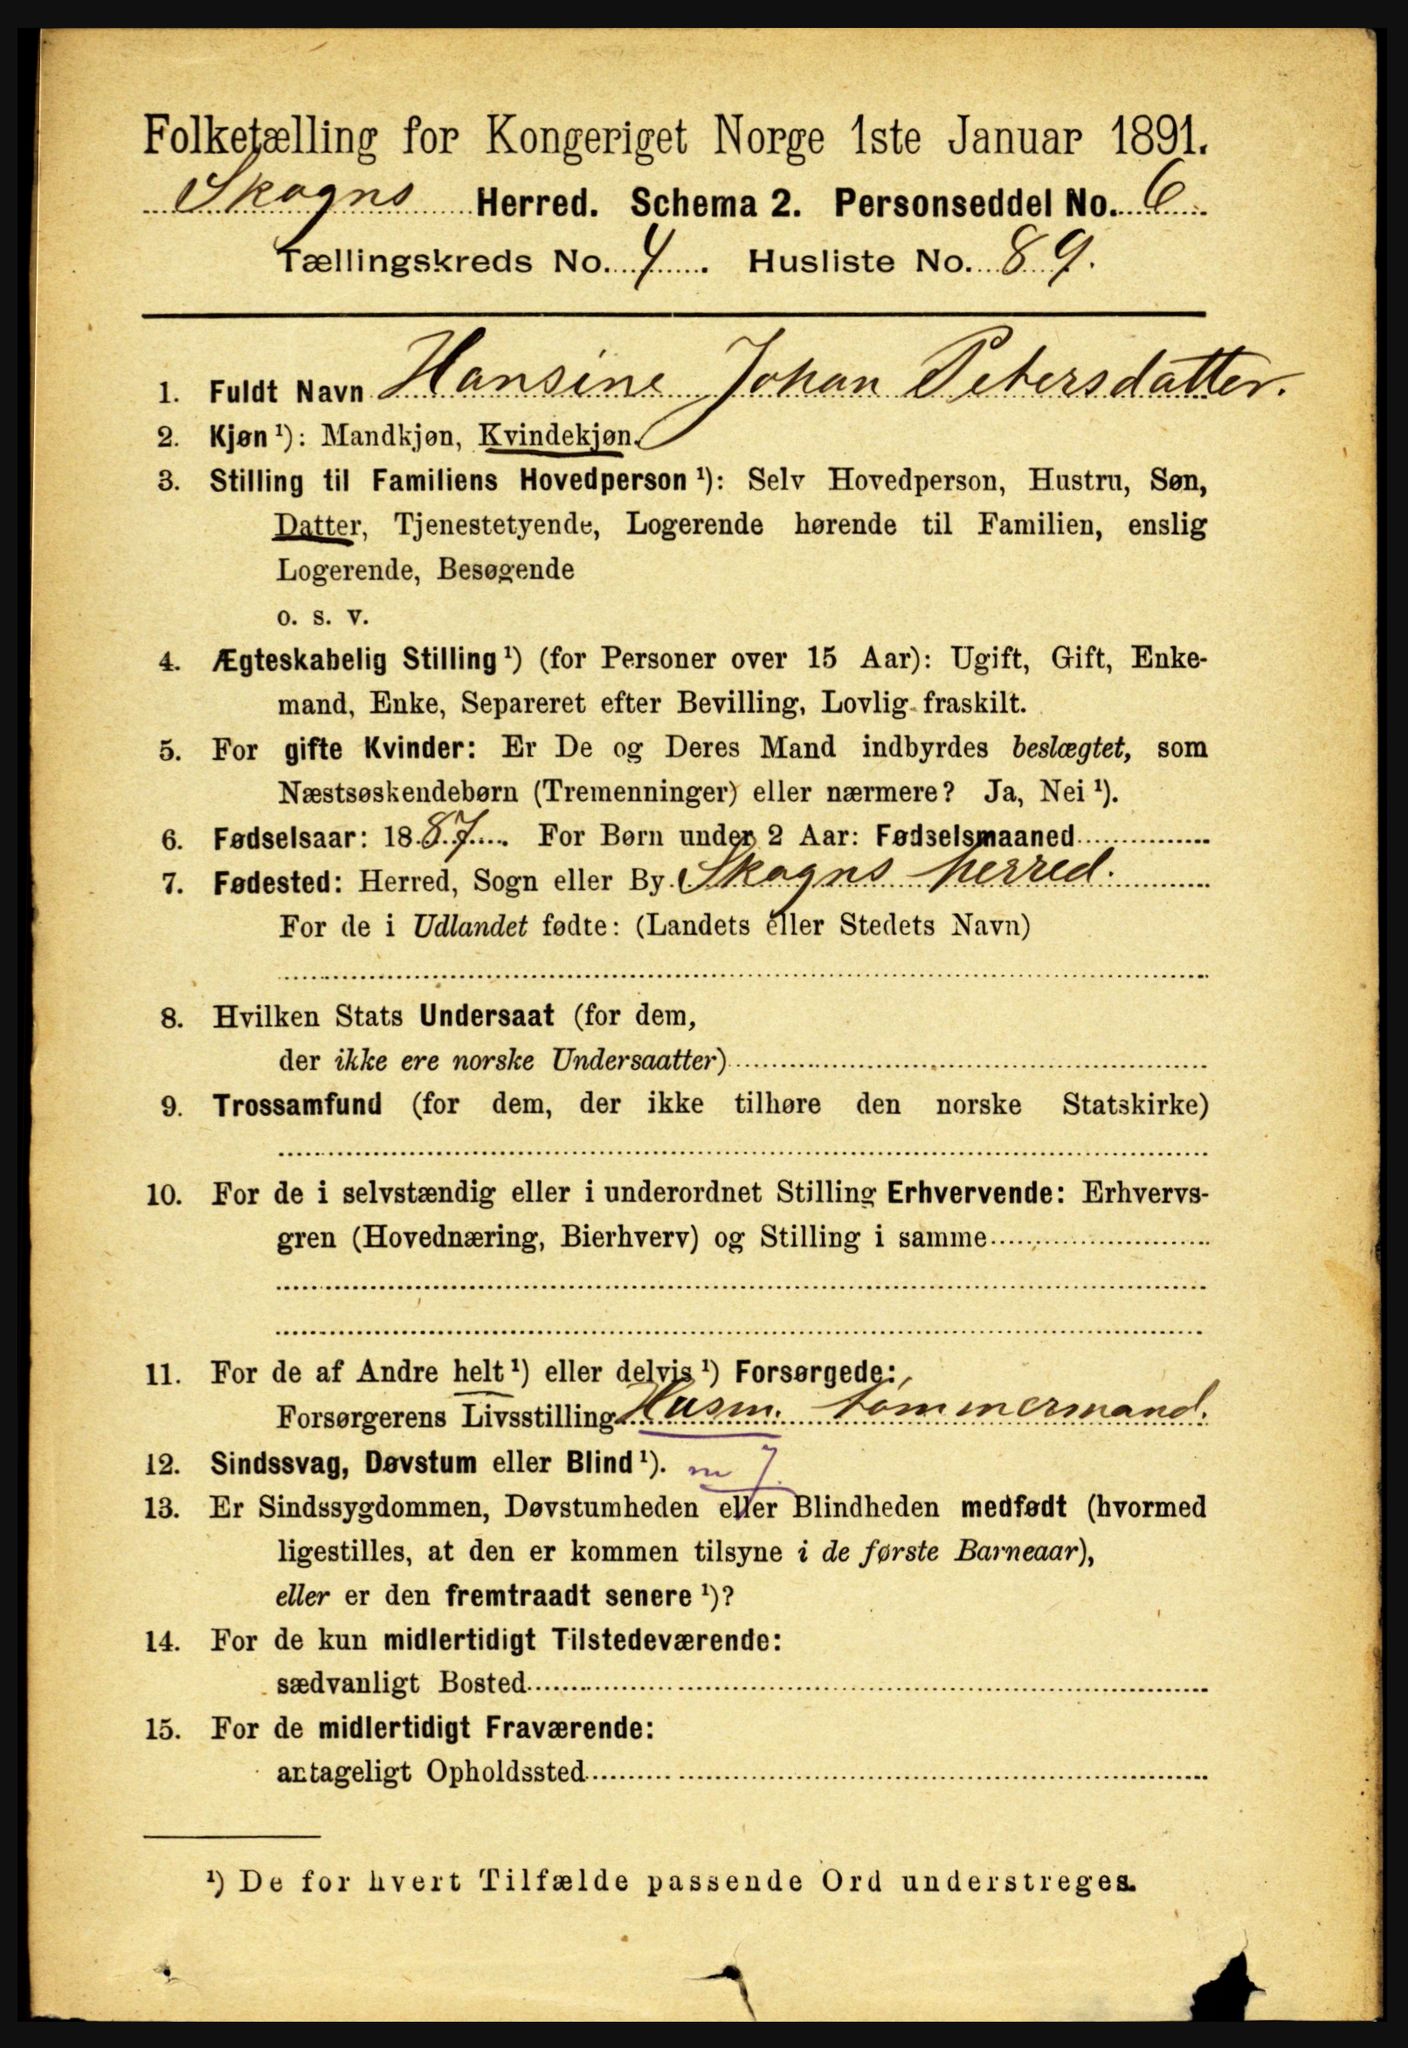 Folketælling for Kongeriget Norge 1ste Januar 1891.
Skogns Herred. Schema 2. Personseddel No. 6
Tællingskreds No. 4. Husliste No. 89.
1. Fuldt Navn Hansine Johan Petersdatter.
2. Kjøn ¹): Mandkjøn, Kvindekjøn.
3. Stilling til Familiens Hovedperson ¹): Selv Hovedperson, Hustru, Søn,
Datter, Tjenestetyende, Logerende hørende til Familien, enslig
Logerende, Besøgende
o. s. v.
4. Ægteskabelig Stilling ¹) (for Personer over 15 Aar): Ugift, Gift, Enke-
mand, Enke, Separeret efter Bevilling, Lovlig fraskilt.
5. For gifte Kvinder: Er De og Deres Mand indbyrdes beslægtet, som
Næstsøskendebørn (Tremenninger) eller nærmere? Ja, Nei ¹).
6. Fødselsaar: 1887. For Børn under 2 Aar: Fødselsmaaned
7. Fødested: Herred, Sogn eller By Skogns herred.
For de i Udlandet fødte: (Landets eller Stedets Navn)
8. Hvilken Stats Undersaat (for dem,
der ikke ere norske Undersaatter)
9. Trossamfund (for dem, der ikke tilhøre den norske Statskirke)
10. For de i selvstændig eller i underordnet Stilling Erhvervende: Erhvervs-
gren (Hovednæring, Bierhverv) og Stilling i samme
11. For de af Andre helt ¹) eller delvis ¹) Forsørgede:
Forsørgerens Livsstilling Husm. tømmermand.
12. Sindssvag, Døvstum eller Blind ¹). m 7
13. Er Sindssygdommen, Døvstumheden eller Blindheden medfødt (hvormed
ligestilles, at den er kommen tilsyne i de første Barneaar),
eller er den fremtraadt senere ¹)?
14. For de kun midlertidigt Tilstedeværende:
sædvanligt Bosted
15. For de midlertidigt Fraværende:
antageligt Opholdssted
¹) De for hvert Tilfælde passende Ord understreges.